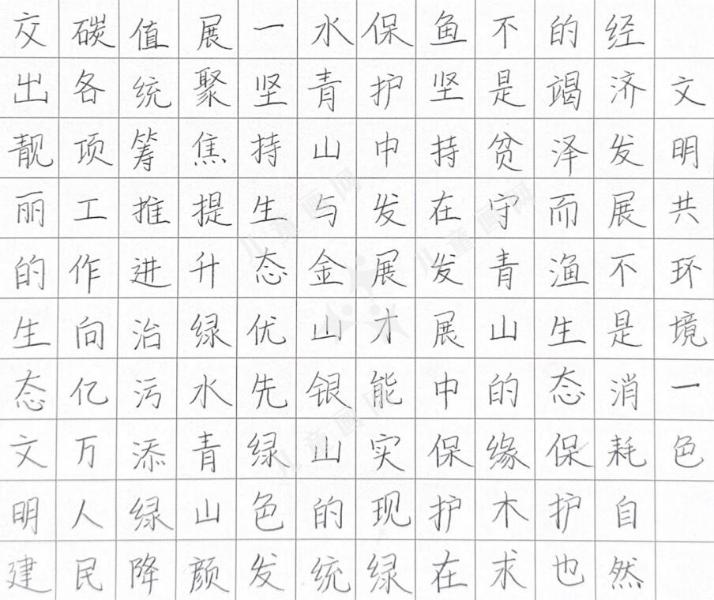 文明共环境一色
经济发展不是消耗自然
的竭泽而渔生态保护也
不是贫守青山的缘木求
鱼坚持在发展中保护在
保护中发展才能实现绿
水青山与金山银山的统
一坚持生态优先绿色发
展聚焦提升绿水青山颜
值统筹推进治污添绿降
碳各项工作向亿万人民
交出靓丽的生态文明建
儿童画网
儿童画网
儿童画网